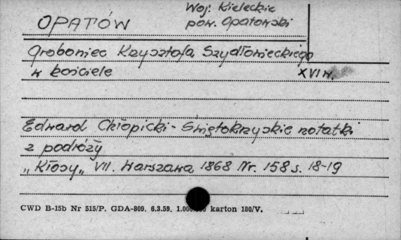 Woj. Kieleckie
OPATÓW pow. Opatowski
Groboniec Krzysztofa Szydłowieckiego
w kościele XVI w.
Edward Chłopicki - Świętokrzyskie notatki
z podróży
„Kłosy„ VII. Warszawa 1868 Nr. 158 s. 18-19
CWD B-15b Nr 515/P. GDA-809. 6.3.59. karton 180/V.